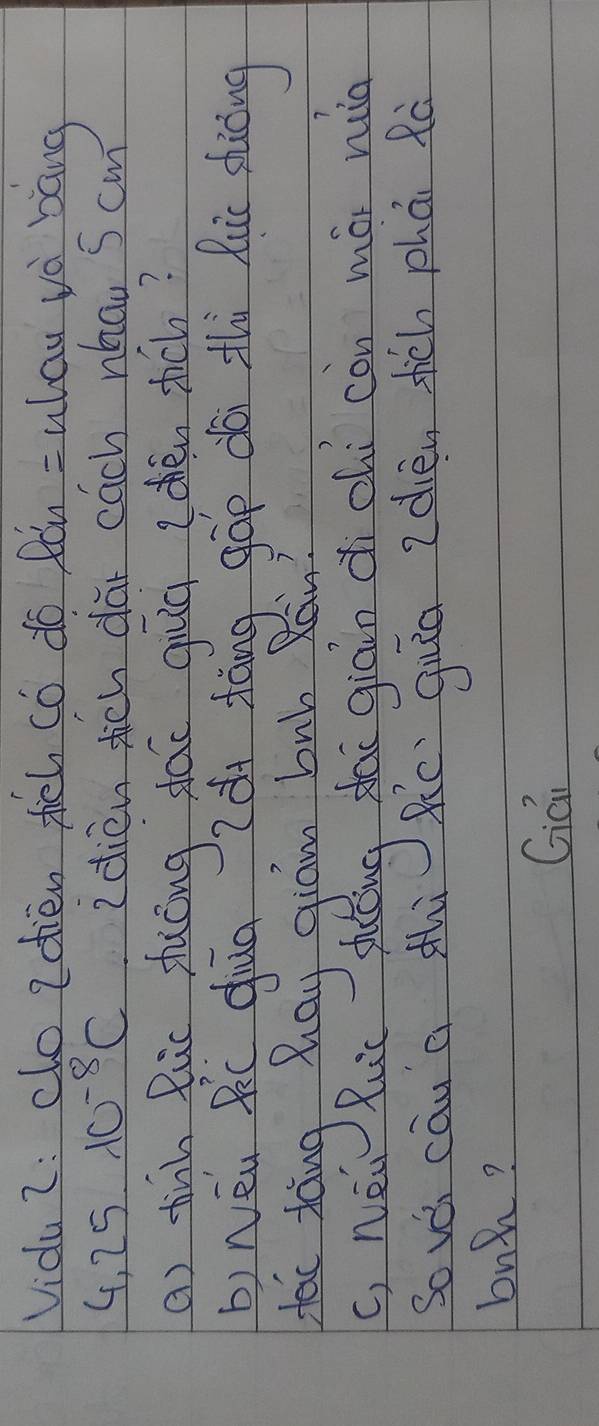 Ví dụ 2: cho 2 điện tích có độ lớn = nhau và bằng
4,25. 10⁻⁸ C. 2 điện tích đặt cách nhau 5 cm
a) tính lực tương tác giữa 2 điện tích?
b) Nếu k/c giữa 2đt tăng gấp đôi thì lực tương
tác tăng hay giảm bnh lần?
c, Nếu lực tương tác giảm đi chỉ còn một nửa
So với câu a thì k/c giữa 2 điện tích phải là
bnh?
Giải